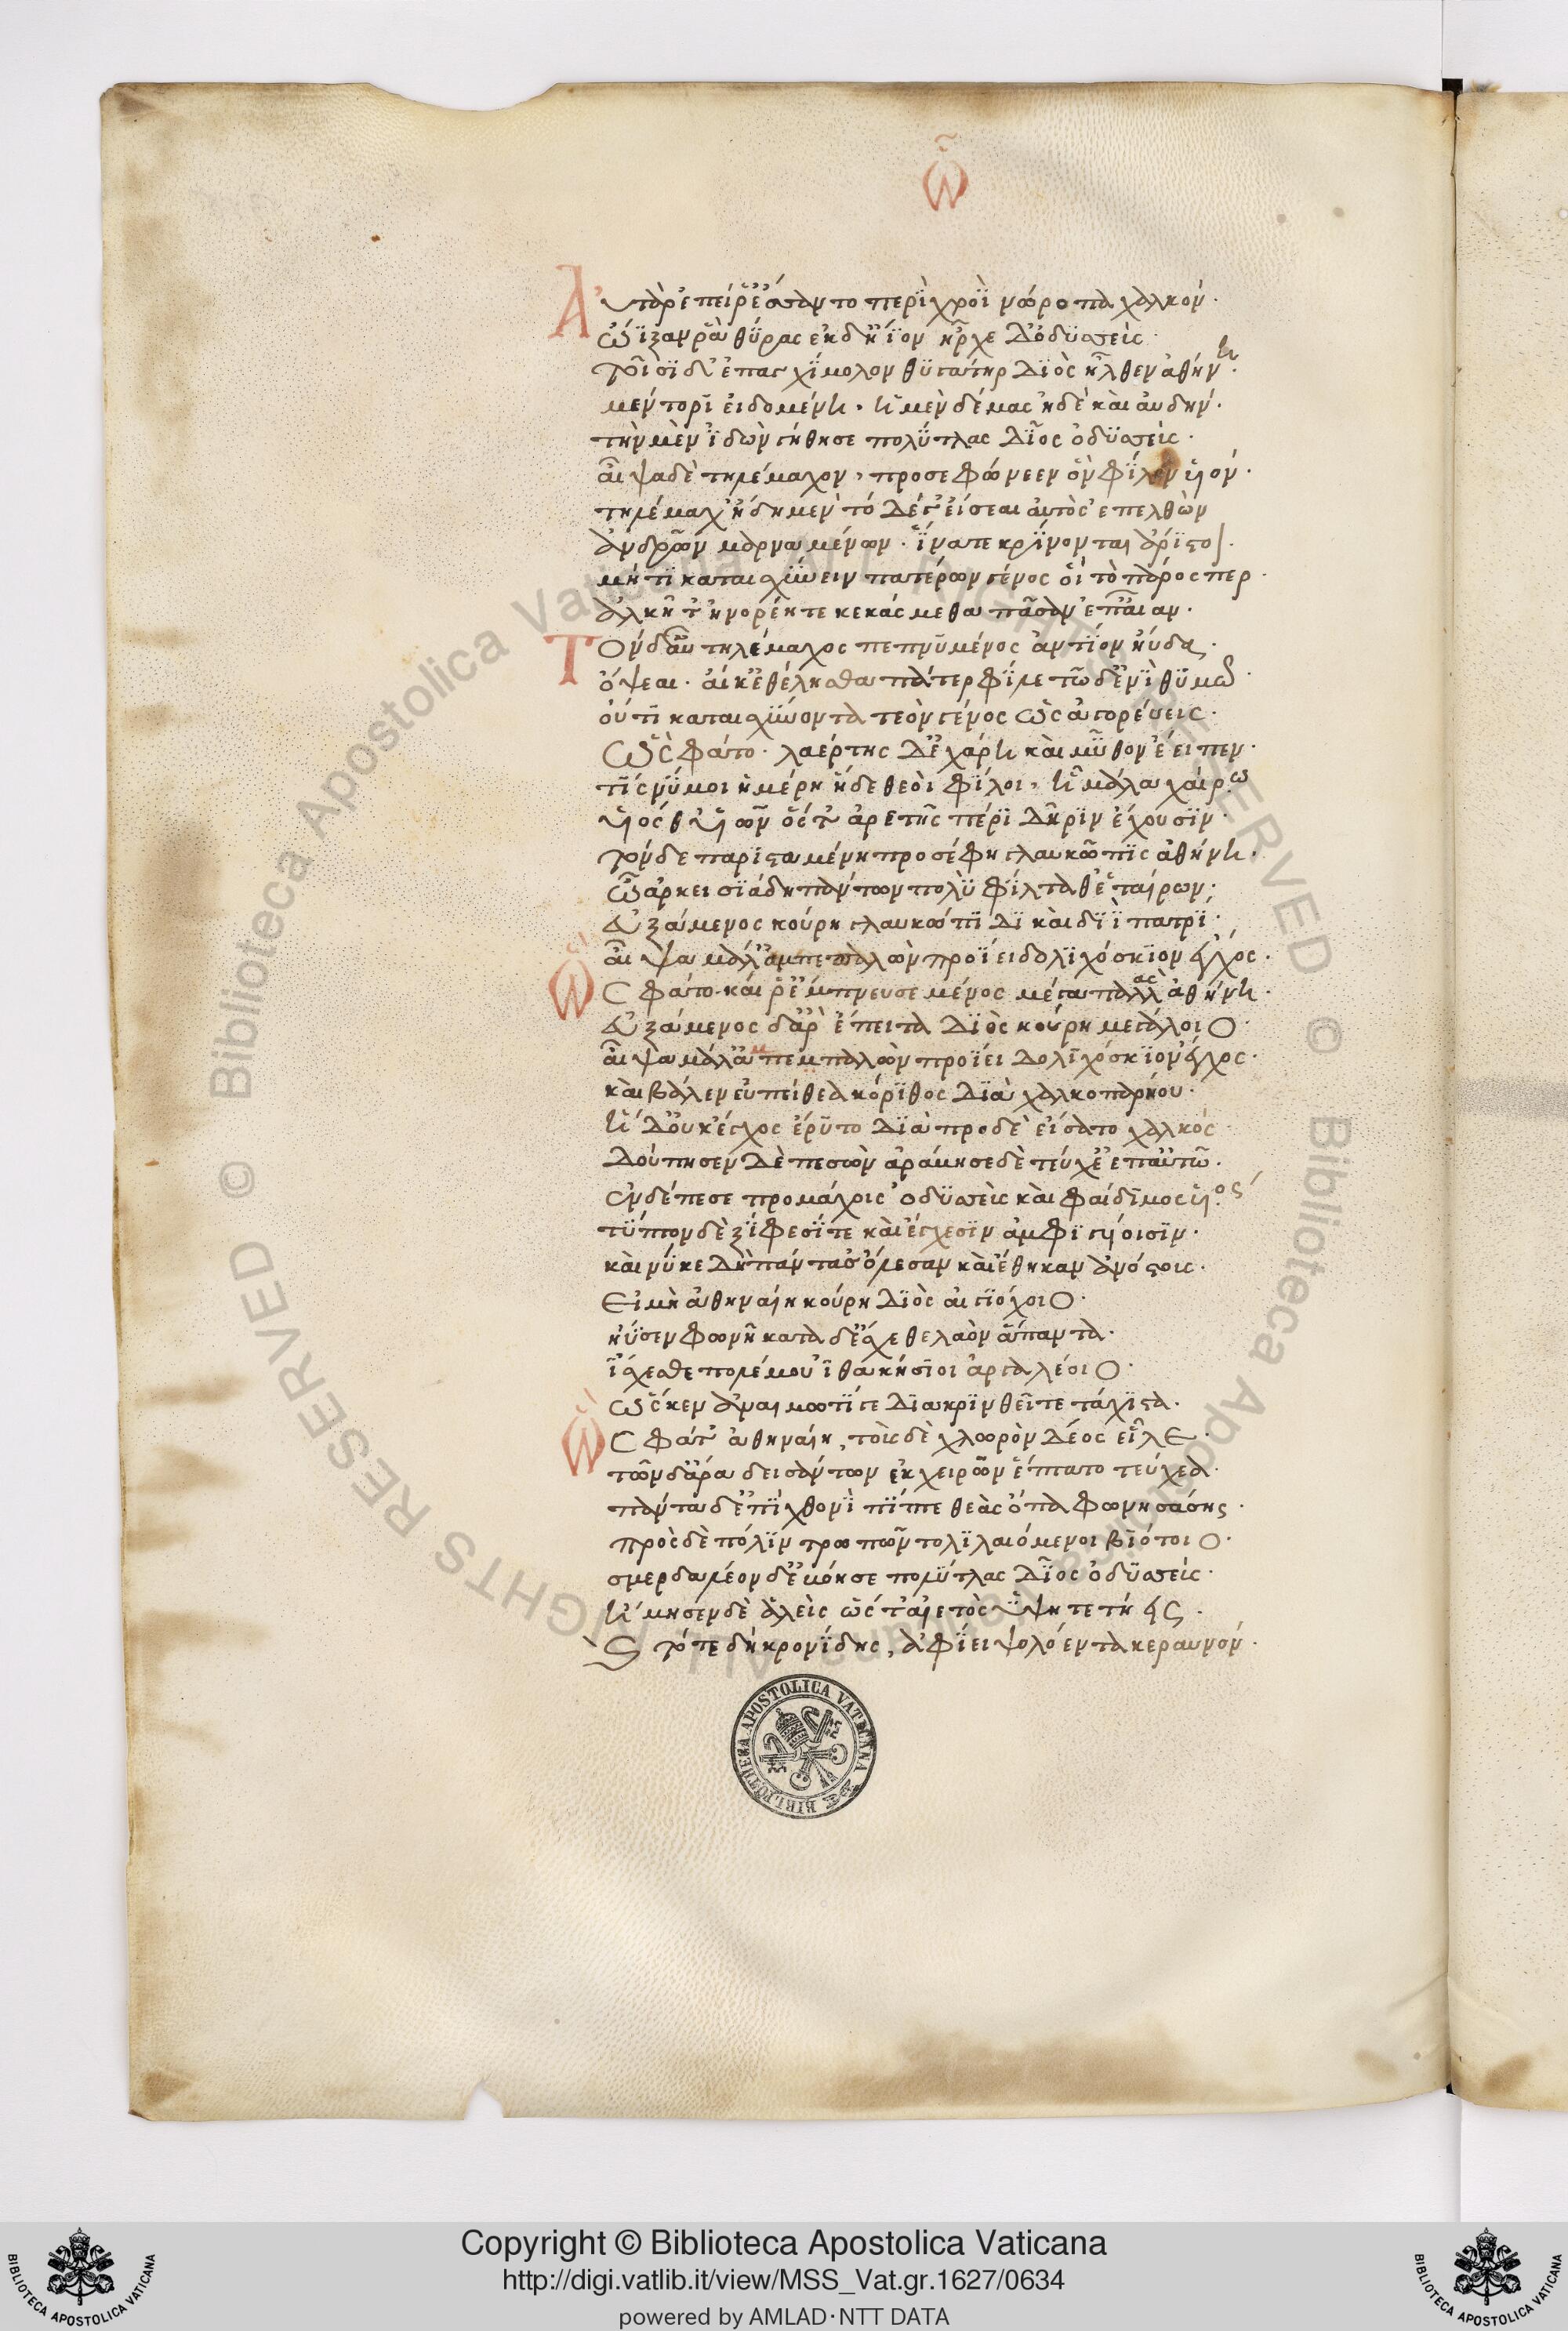 ὦ
Αὐτὰρ ἐπεί ῥ' ἕσσαντο περῒ χροῒ νώροπα χαλκόν·
ὤϊξαν ῥὰ θύρας ἐκ δ' ἤϊον ἦρχε δ' ὀδυσσεύς·
τοῖσι δ' ἐπ' ἀγχίμολον θυγάτηρ διὸς ἦλθεν ἀθήνη·
μέντορι εἰδομένη· ἠμὲν δέμας ἠδὲ καὶ αὐδήν·
τὴν μὲν ἰδὼν γήθησε πολύτλας δῖος ὀδυσσεύς·
αἶψα δὲ τηλέμαχον, προσεφώνεεν ὃν φίλον υἱόν·
τηλέμαχ' ἤδη μὲν τό δέ γ' εἴσεαι αὐτὸς ἐπελθὼν
ἀνδρῶν μαρναμένων· ἵνα τε κρίνονται ἄριστοι·
μή τι καταισχύνειν πατέρων γένος οἵ τὸ πάρος περ·
ἀλκῇ τ' ἠνορέη τε κεκάσμεθα πᾶσαν ἐπ' αἶαν·
Τὸν δ' αὖ τηλέμαχος πεπνυμένος ἀντίον ηὔδα·
ὄψεαι· αἴ κ' ἐθέλησθα πάτερ φίλε τῷδ' ἐνὶ θυμῷ·
οὔτι καταισχύνοντα τεὸν γένος ὡς ἀγορέυεις·
Ὣς φάτο· λαέρτης δ' ἐχάρη καὶ μῦθον ἔειπεν·
τίς νύ μοι ἡμέρη ἥδε θεοὶ φίλοι, ἦ μάλα χαίρω·
υἱός θ' υἱωνός τ' ἀρετῆς πέρι δῆριν ἔχουσιν·
τὸν δὲ παρισταμένη προσέφη γλαυκῶπις ἀθήνη·
ὦ ἀρκεισιάδη πάντων πολὺ φίλταθ' ἑταίρων·
εὐξάμενος κούρη γλαυκώπιδι καὶ διῒ πατρί·
αἶψα μάλ' ἀμπεπαλὼν προΐει δολιχόσκιον ἔγχος·
Ὣς φάτο· καί ῥ' ἔμπνευσε μένος μέγα παλλὰς ἀθήνη·
εὐξάμενος δ' ἄρ' ἔπειτα διὸς κούρη μεγάλοιο·
αἶψα μάλ' ἀμπεμπαλὼν προΐει δολιχόσκιον ἔγχος·
καὶ βάλεν εὐπείθεα κόρυθος διὰ χαλκοπαρήου·
ἡ δ' οὐκ ἔγχος ἔρυτο διὰ πρὸ δὲ εἴσατο χαλκός·
δούπησεν δὲ πεσὼν ἀράμησε δὲ τεύχε' ἐπ' αὐτῷ·
ἐν δ' ἔπεσε προμάχοις ὀδυσσεὺς καὶ φαίδιμος υἱός·
τύπτον δὲ ξίφεσίν τε καὶ ἔγχεσιν ἀμφιγύοισιν·
καὶ νύ κε δὴ πάντας ὄλεσαν καὶ ἔθηκαν ἀνόστους·
Εἰ μὴ ἀθηναίη κούρη διὸς αἰγιόχοιο·
ἤϋσεν φωνῇ κατὰ δ' ἔσχεθε λαὸν ἅπαντα·
ἴσχεσθε πολέμου ἰθακήσιοι ἀργαλέοιο·
ὥς κεν ἀναιμωτί γε διακρινθεῖτε τάχιστα·
Ὣς φάτ' ἀθηναίη, τοὺς δὲ χλωρὸν δέος εἷλε·
τῶν δ' ἄρα δεισάντων ἐκ χειρῶν ἔπτατο τεύχεα·
πάντα δ' ἐπὶ χθονὶ πῖπτε θεᾶς ὄπα φωνησάσης·
πρὸς δὲ πόλιν τρωπῶντο λιλαιόμενοι βιότοιο·
σμερδαλέον δ' ἐβόησε πολύτλας δῖος ὀδυσσεύς·
οἴμησεν δὲ ἀλεὶς ὥς τ' αἰετὸς ὑψηπετήεις·
καὶ τότε δὴ κρονίδης, ἀφίει ψολόεντα κεραυνόν·
BIBLIOTHECA APOSTOLICA VATICANA
Copyright © Biblioteca Apostolica Vaticana
http://digi.vatlib.it/view/MSS_Vat.gr.1627/0634
powered by AMLAD·NTT DATA